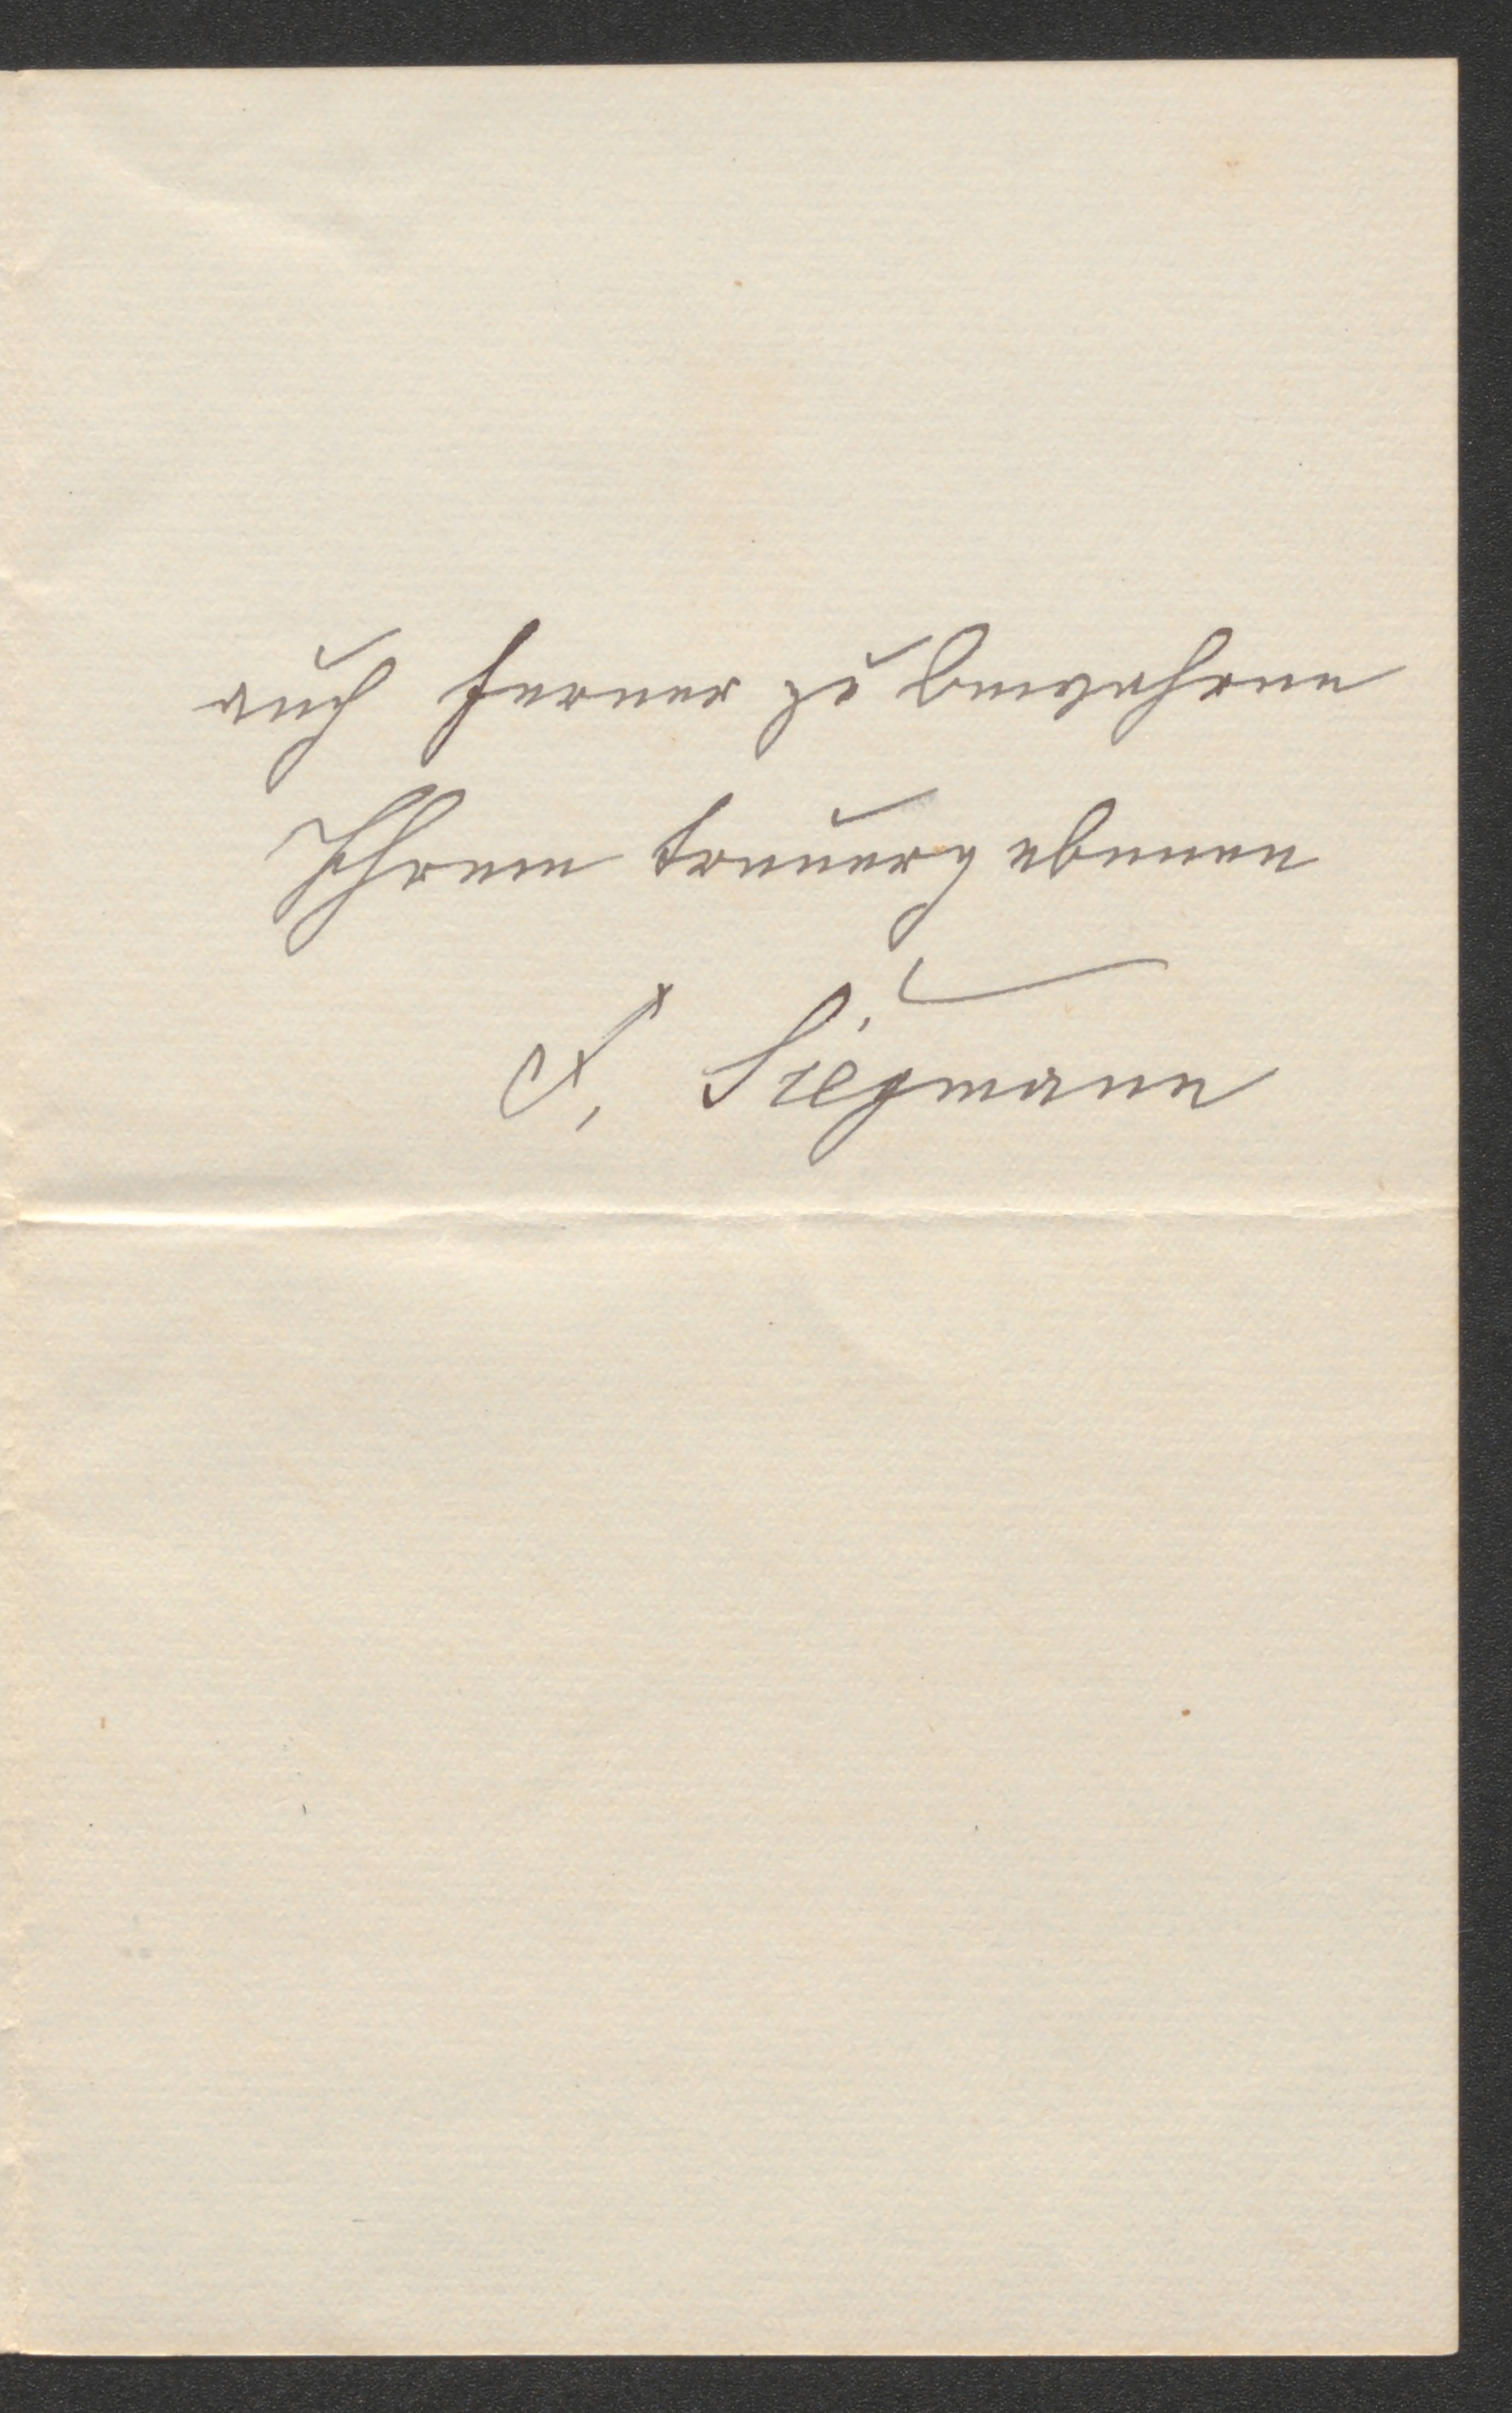 auch ferner zu bewahren
Ihrem treuergebenen
F. Siegmann